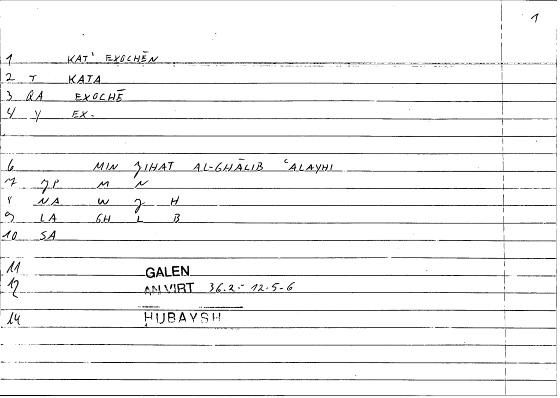 1
1 KAT' EXOCHĒN
2 T KATA
3 QA EXOCHĒ
4 Y EX-
6 MIN JIHAT AL-GHĀLIB ʿALAYHI
7 JP M N
8 NA W J H
9 LA GH L B
10 SA
11 GALEN
12 AN VIRT 36.2 - 12.5-6
14 HUBAYSH